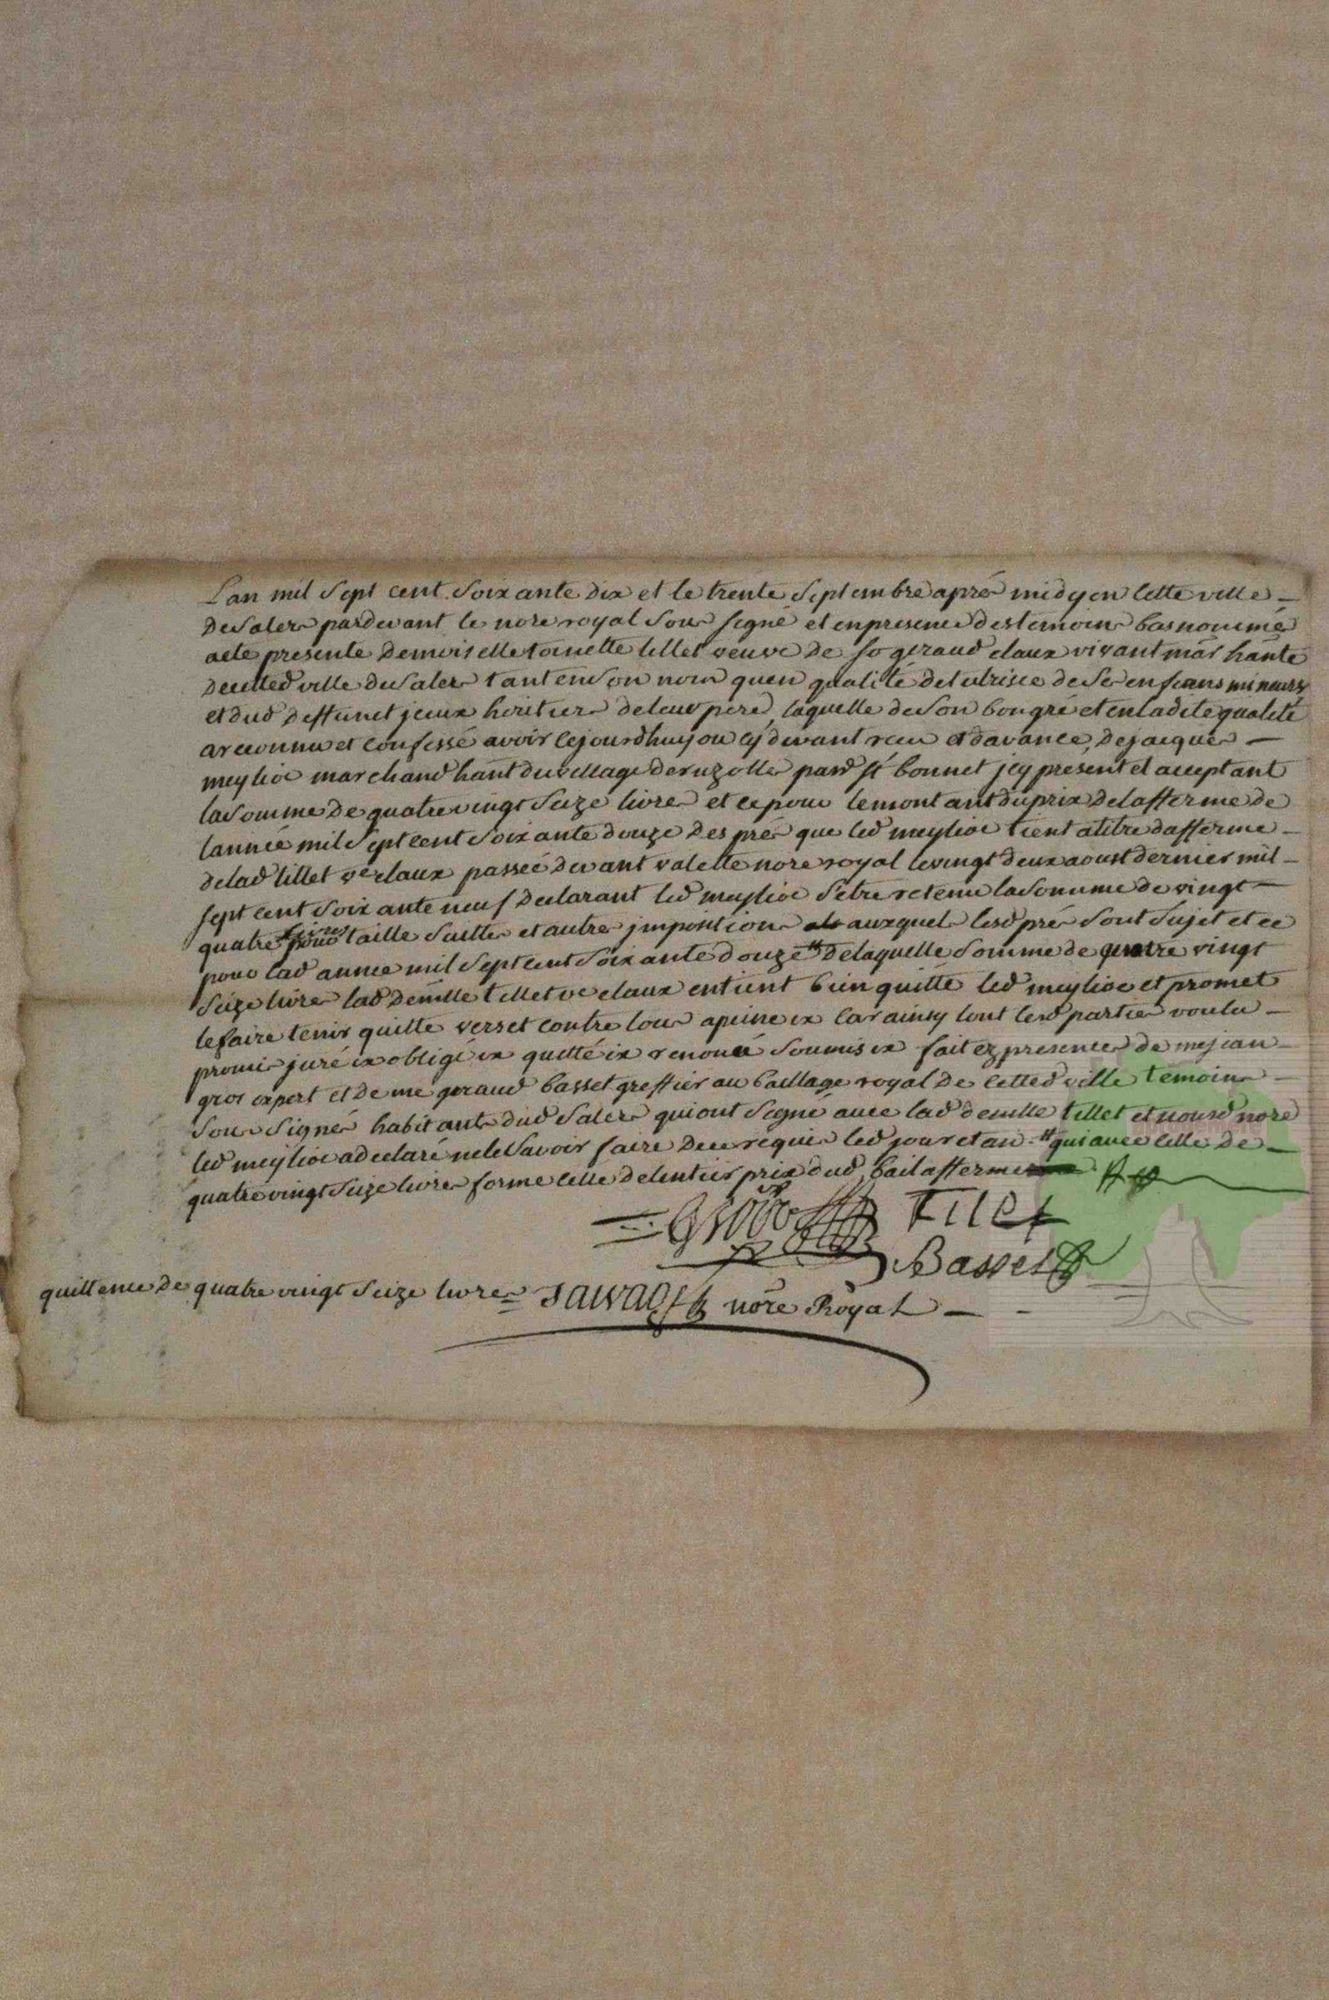 L'an mil sept cent soixante dix et le trente septembre aprés midy en cette ville
de salers pardevant le nore royal sous signé et en presence des temoins bas nommés
a eté presente demoiselle toinette tillet veuve de sr geraud claux vivant marchand hant
de cetted ville de salers tant en son nom qu'en qualité de tutrisce de ses enfcans mineurs
et dud deffunct jceux heritiers de leur pere, laquelle de son bon gré et en ladite qualité
a reconnu et confessé avoir cejourdhuy ou cy devant recu et davance, de jacques
meylioc marchand hant du village de ruzolles parse st bonnet jcy present et acceptant
la somme de quatre vingt seize livres et ce pour le montant du prix de lafferme de
lannée mil sept cent soixante douze des prés que led meylioc tient a titre dafferme
de lad tillet ve claux passée devant valette nore royal le vingt deux aoust dernier mil
sept cent soixante neuf declarant led meylioc s'etre retenu la somme de vingt
quatre livres pour taille suittes et autres jmpositions auxquels lesd prés sont sujet et ce
pour lad année mil sept cent soixante douze # de laquelle somme de quatre vingt
seize livres lad demlle tillet ve claux en tient bien quitte led meylioc et promet
le faire tenir quitte vers et contre tous a peine ix car ainsy tout lesd parties voulu
promis juré ix obligé ix quitté ix renoncé soumis ix fait ez presences de me jean
gros expert et de me geraud basset greffier au baillage royal de cetted ville temoins
sous signés habitants dud salers qui ont signé avec lad demlle tillet et nousd nore
led meylioc a declaré ne le savoir faire de ce requis led jour et an # qui avec celle de
quatre vingt seize livres forme celle de lentier prix dud bail afferme
Gros Tilet
Basset
quittence de quatre vingt seize livres = sauvage nore Royal